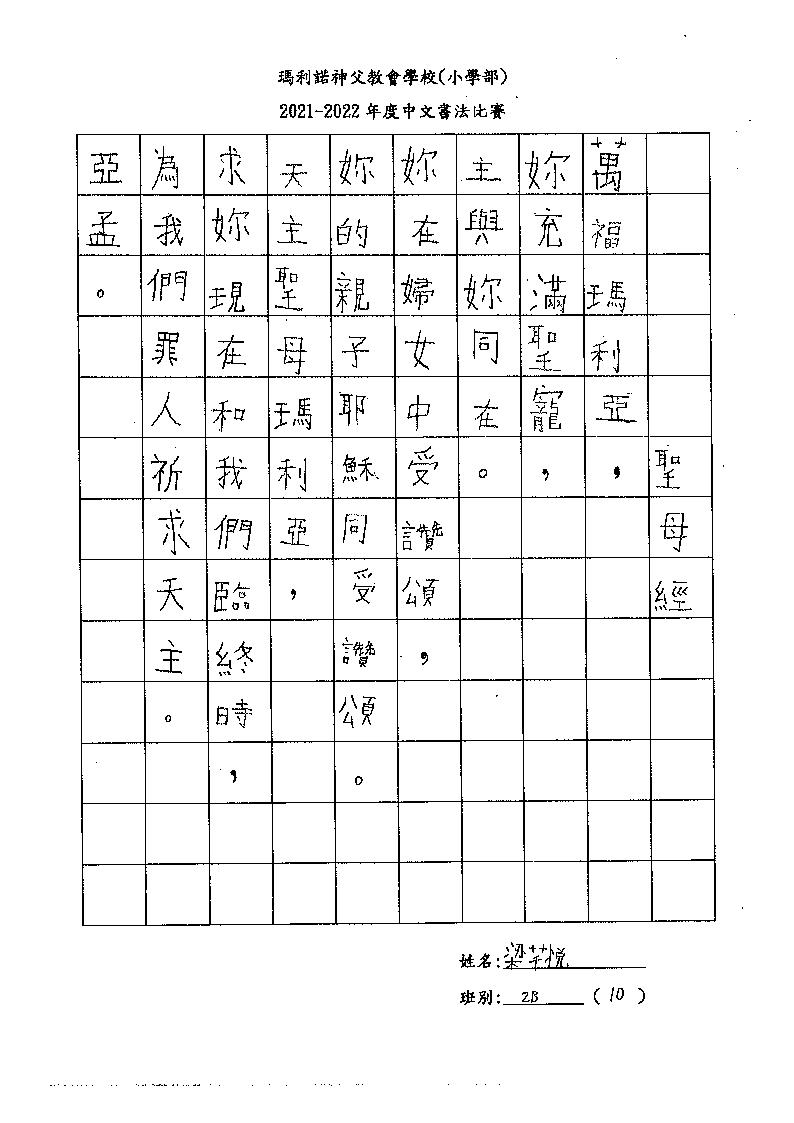 瑪利諾神父教會學校(小學部)
2021-2022 年度中文書法比賽
聖母經
萬福瑪利亞，
妳充滿聖寵，
主與妳同在。
妳在婦女中受讚頌，
妳的親子耶穌同受讚頌。
天主聖母瑪利亞，
求妳現在和我們臨終時，
為我們罪人祈求天主。
亞孟。
姓名:梁芊悅
班別: 2B (10)